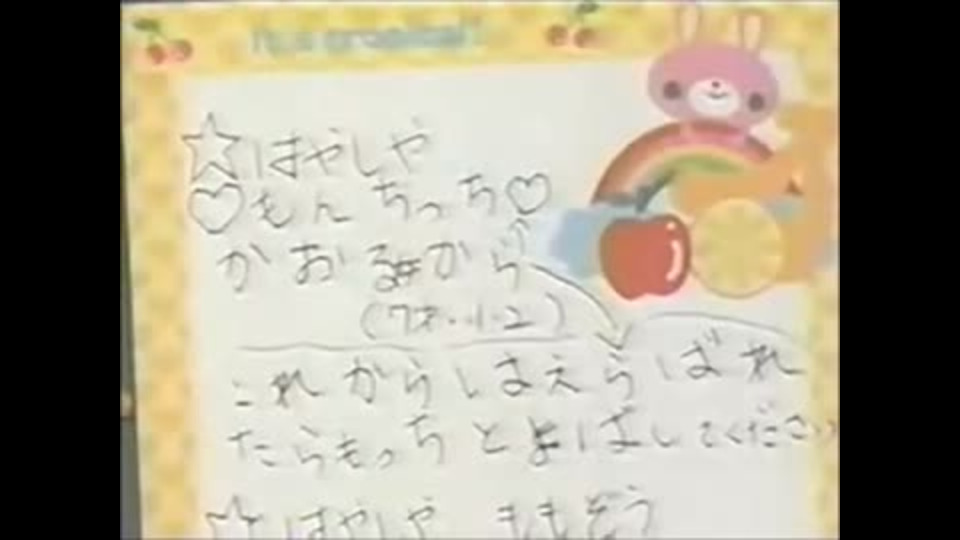 It's a tropical!!
☆はやしや
♡もんちっち♡
かおる#から
(7才・1・2)
これからはえらばれ
たらもっちとよばしてください
☆はやしや ももぞう